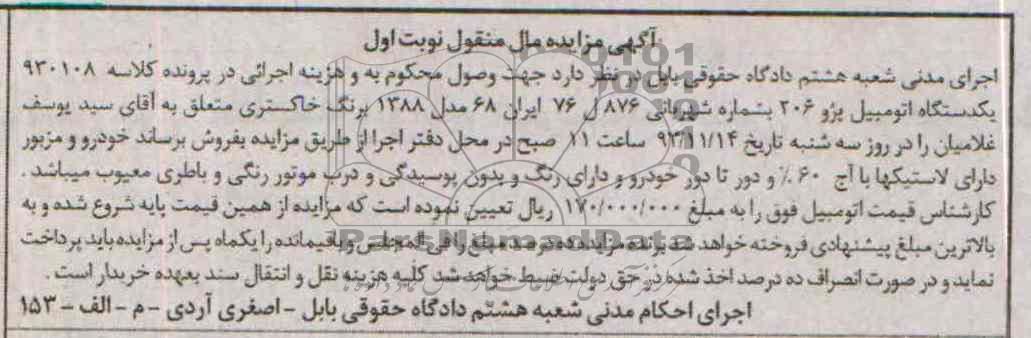 آگهی مزایده مال منقول نوبت اول
اجرای مدنی شعبه هشتم دادگاه حقوقی بابل در نظر دارد جهت وصول محکوم به و هزینه اجرائی در پرونده کلاسه ۹۳۰۱۰۸
یکدستگاه اتومبیل پژو ۲۰۶ بشماره شهربانی ۸۷۶ ل ۷۶ ایران ۶۸ مدل ۱۳۸۸ برنگ خاکستری متعلق به آقای سید یوسف
غلامیان را در روز سه شنبه تاریخ ۹۳/۱۱/۱۴ ساعت ۱۱ صبح در محل دفتر اجرا از طریق مزایده بفروش برساند خودرو و مزبور
دارای لاستیکها با آج ۶۰٪ و دور تا دور خودرو و دارای رنگ و بدون پوسیدگی و درب موتور رنگی و باطری معیوب میباشد .
کارشناس قیمت اتومبیل فوق را به مبلغ ۱۷۰/۰۰۰/۰۰۰ ریال تعیین نموده است که مزایده از همین قیمت پایه شروع شده و به
بالاترین مبلغ پیشنهادی فروخته خواهد شد برنده مزایده ده درصد مبلغ را فی المجلس و باقیمانده را یکماه پس از مزایده باید پرداخت
نماید و در صورت انصراف ده درصد اخذ شده در حق دولت ضبط خواهد شد کلیه هزینه نقل و انتقال سند بعهده خریدار است .
اجرای احکام مدنی شعبه هشتم دادگاه حقوقی بابل - اصغری آردی - م - الف - ۱۵۳
ParsNamadData